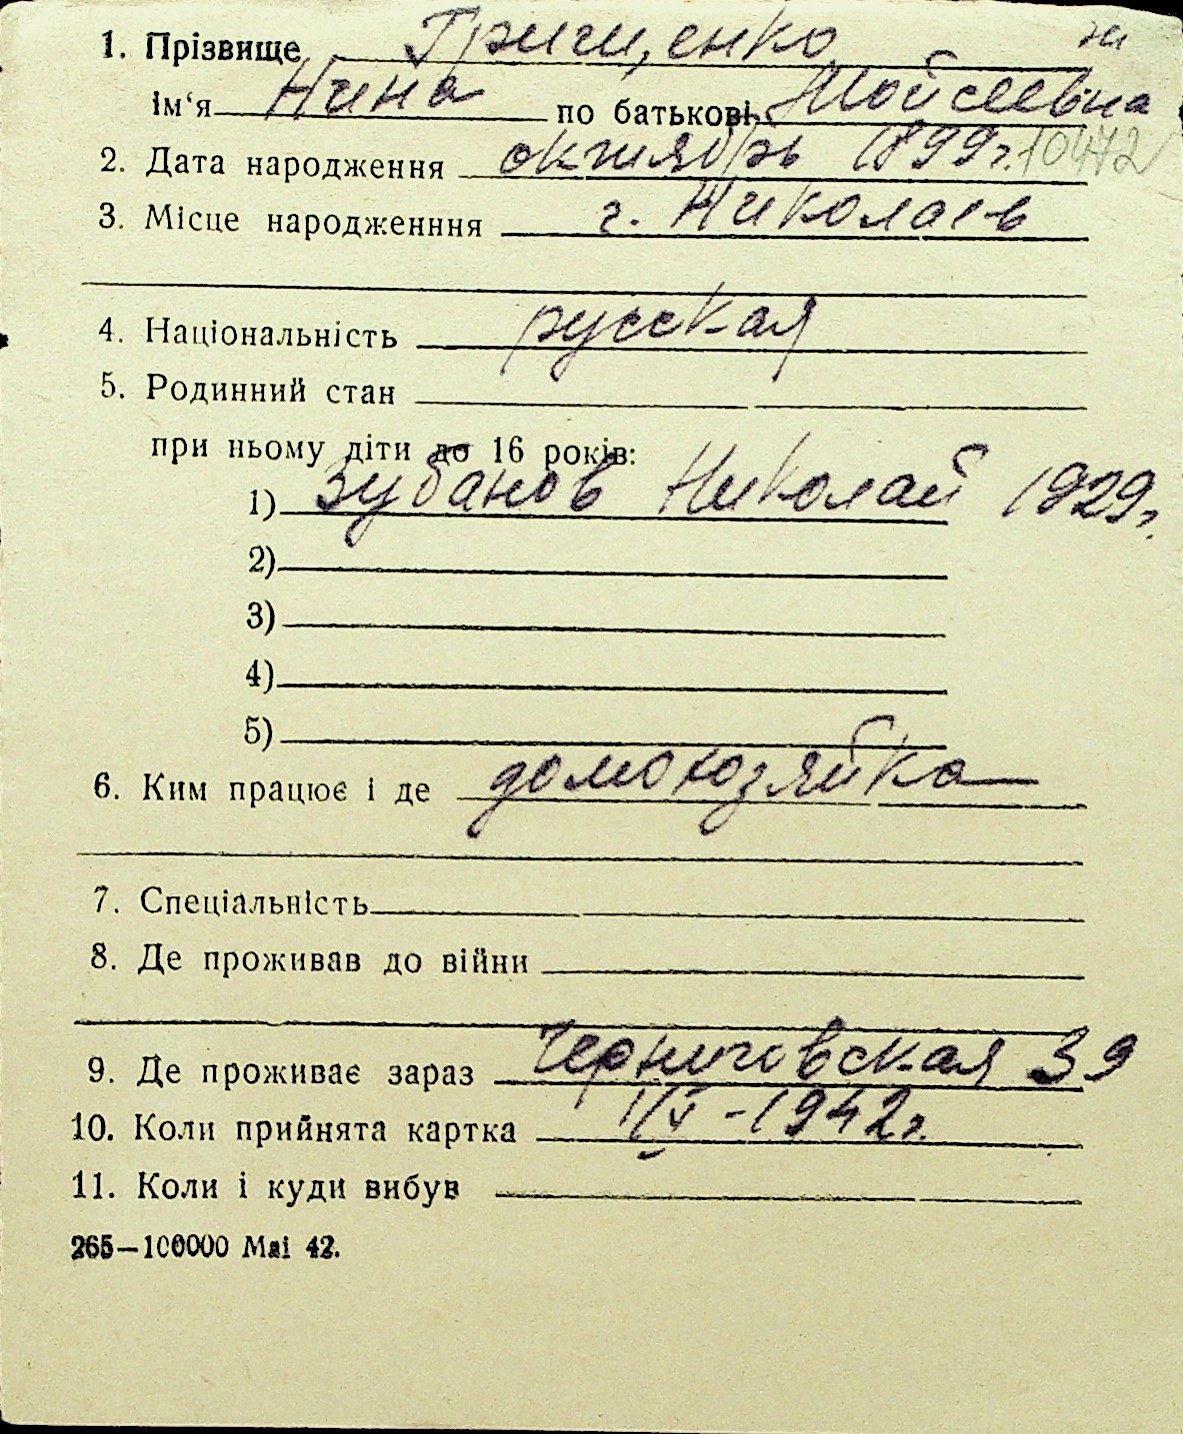 1. Прізвище Грищенко
ім‘я Нина по батькові Мойсеевна
2. Дата народження октябрь 1899г. 10472
3. Місце народженння г. Николаев
4. Національність русская
5. Родинний стан
при ньому діти до 16 років:
1) Зубанов Николай 1929г.
2)
3)
4)
5)
6. Ким працює і де домохозяйка
7. Спеціальність
8. Де проживав до війни
9. Де проживає зараз Черниговская 39
10. Коли прийнята картка 1/V - 1942г.
11. Коли і куди вибув
265—100000 Mai 42.